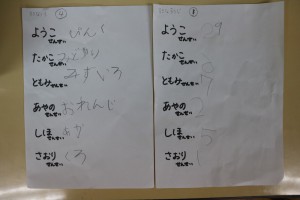 ④
ようこ ぴんく
せんせい
たかこ
せんせい
ともみ みずいろ
せんせい
あやの おれんじ
せんせい
しほ あか
せんせい
さおり くろ
せんせい
①
ようこ
せんせい
たかこ
せんせい
ともみ
せんせい
あやの 2
せんせい
しほ 5
せんせい
さおり 1
せんせい